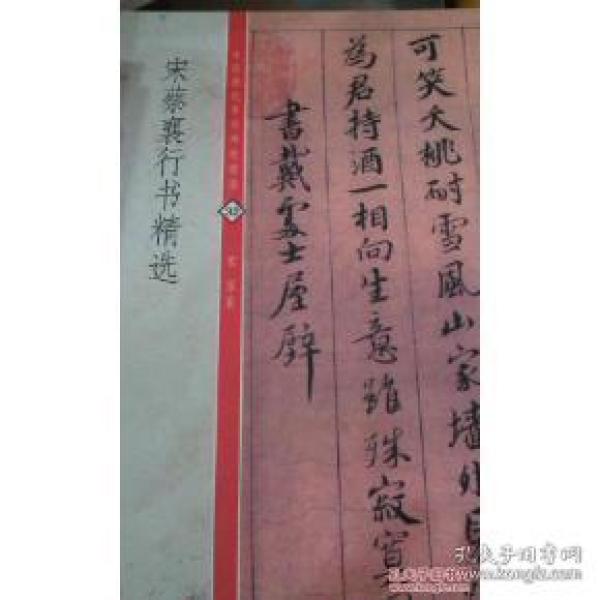 宋蔡襄行书精选
可笑夭桃耐雪風山家墙外
為君持酒一相向生意雖殊寂寞
書戴處士屋壁
孔夫子旧书网
www.kongfz.com